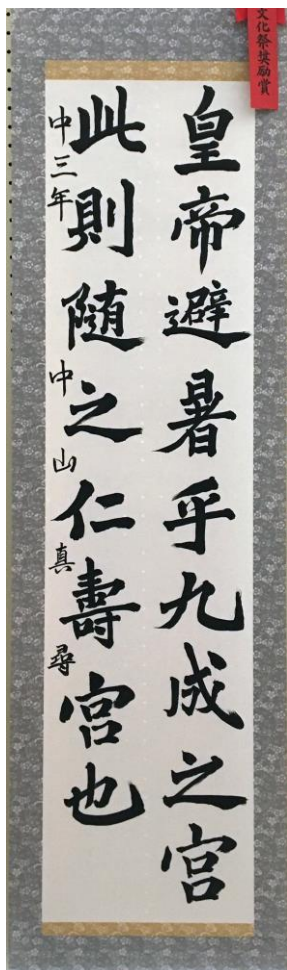 文化祭奨励賞
皇帝避暑乎九成之宮
此則随之仁壽宮也
中三年 中山真尋